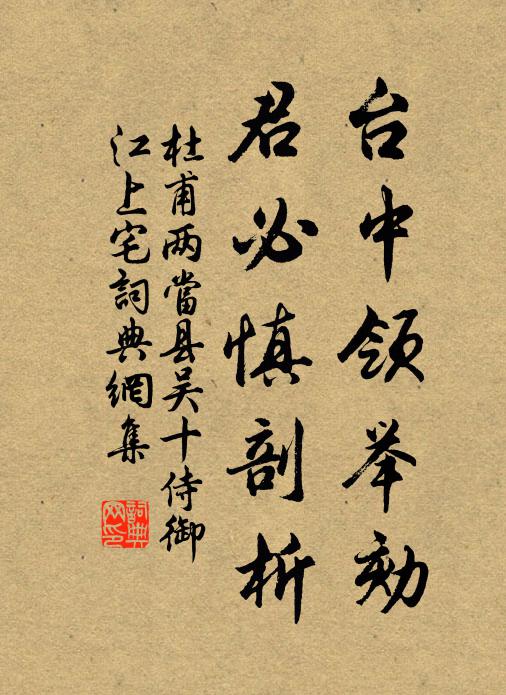 台中领举劾
君必慎剖析
杜甫两當县吴十侍御
江上宅詞典網集
詞典
网印